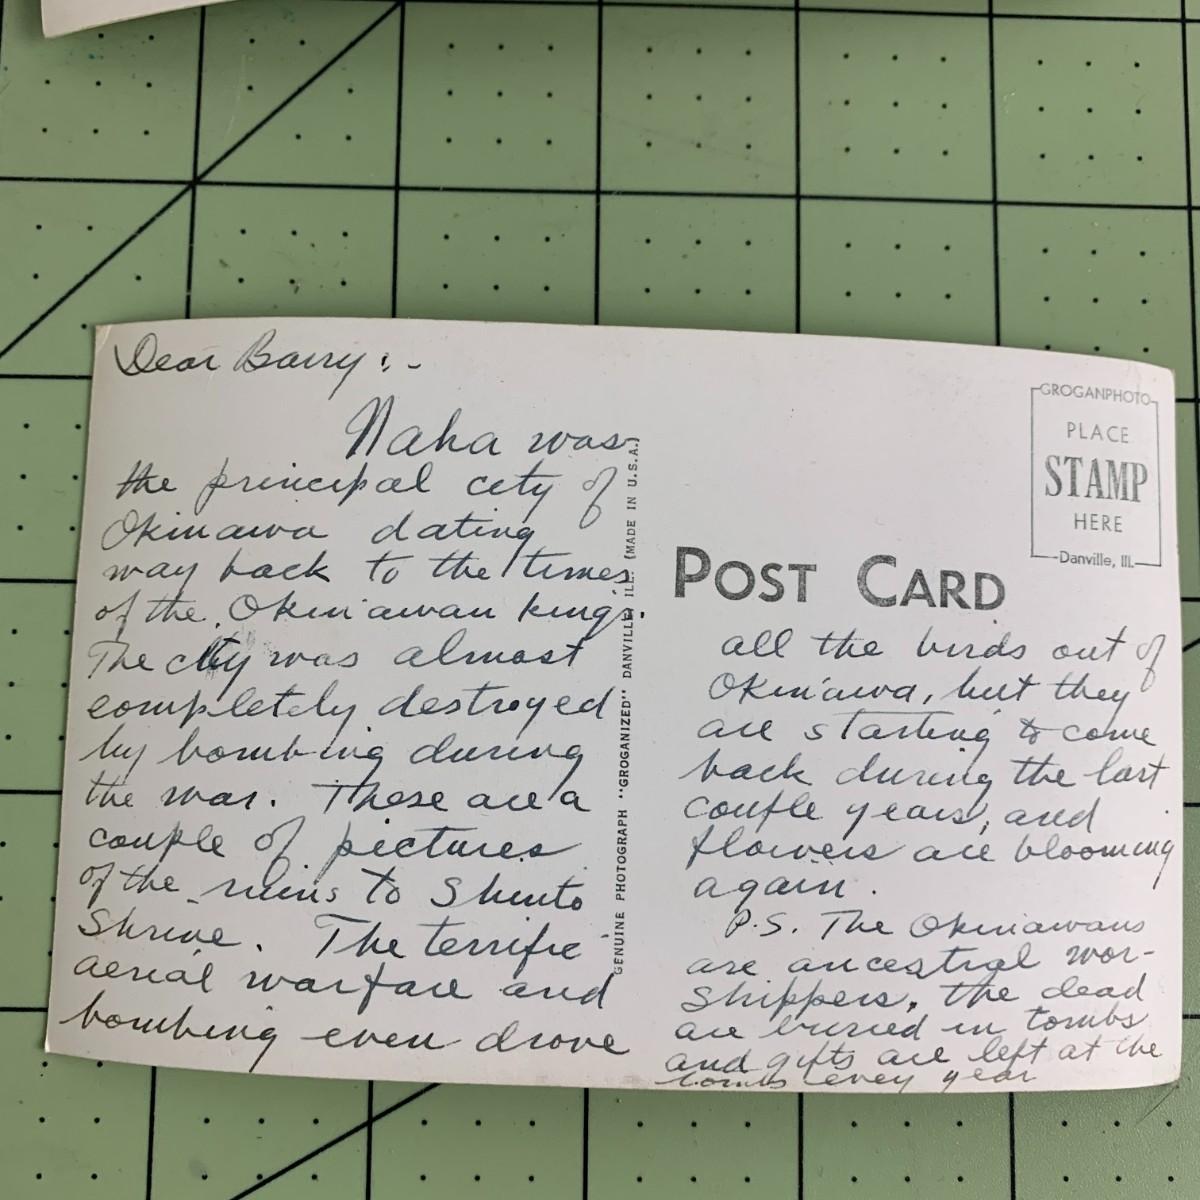 Dear Barry:-
Naha was
the principal city of
Okinawa dating
way back to the times
of the Okinawan kings.
The city was almost
completely destroyed
by bombing during
the war. These are a
couple of pictures
of the ruins to Shinto
Shrine. The terrific
aerial warfare and
bombing even drove
GENUINE PHOTOGRAPH "GROGANIZED" DANVILLE, ILL. (MADE IN U.S.A.)
GROGANPHOTO
PLACE
STAMP
HERE
Danville, Ill.
POST CARD
all the birds out of
Okinawa, but they
are starting to come
back during the last
couple years, and
flowers are blooming
again.
P.S. The Okinawans
are ancestral wor-
shippers, the dead
are buried in tombs
and gifts are left at the
tombs evey year